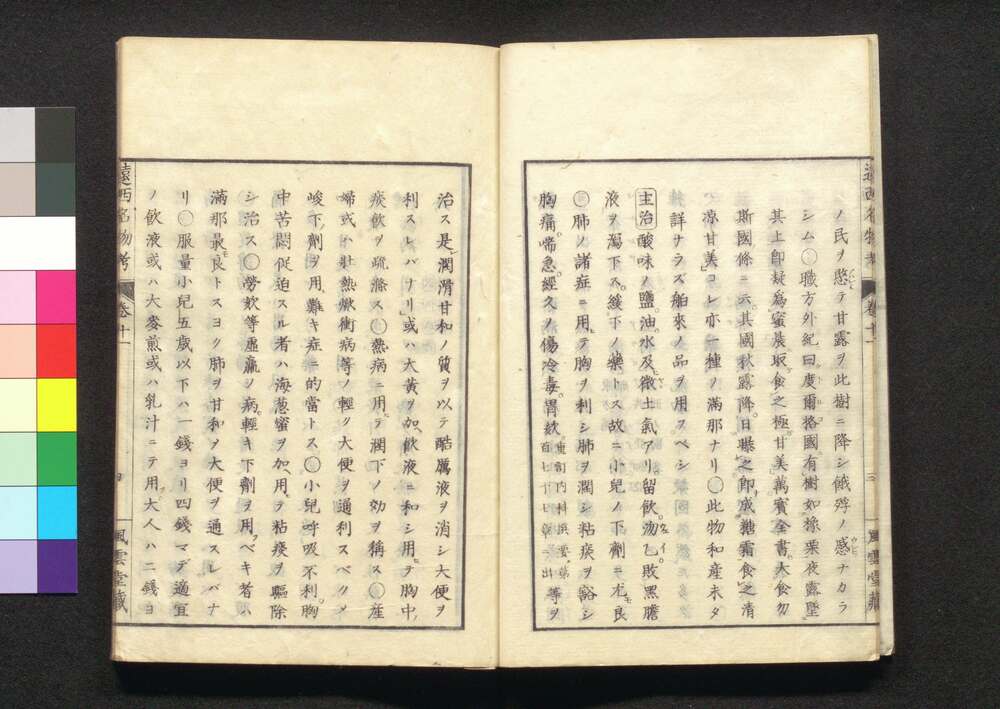 ノ民ヲ愍テ甘露ヲ此樹ニ降シ餓殍ノ感ナカラ
シム〇職方外紀曰度爾格國有樹如橡栗夜露墜
其上卽凝爲蜜晨取食之極甘美萬寶全書大食勿
斯國條ニ云其國秋露降日曝之卽成糖霜食之清
凉甘美コレ亦一種ノ滿那ナリ〇此物和産未タ
詳ナラズ舶來ノ品ヲ用スベシ
主治酸味ノ鹽油水及微土氣アリ留飮沕乙敗黑膽
液ヲ瀉下ス緩下ノ藥トス故ニ小兒ノ下劑ニ尤良
〇肺ノ諸症ニ用テ胸ヲ利シ肺ヲ潤シ粘痰ヲ豁シ
胸痛喘急經久ノ傷冷毒胃欬 等ヲ
遠西名物考 卷十一 風雲堂藏
治ス是潤滑甘和ノ質ヲ以テ酷厲液ヲ消シ大便ヲ
利スレハナリ或ハ大黃ヲ加飮液ニ和シ用ヲ胸中ノ
痰飮ヲ疏滌ス〇熱病ニ用テ潤下ノ効ヲ稱ス〇産
婦或ハ壯熱衂衝病等ノ輕ク大便ヲ通利スベクメ
峻下劑ヲ用難キ症ニ的當トス〇小兒呼吸不利胸
中苦悶促迫スル者ハ海葱蜜ヲ加用テ粘痰ヲ驅除
シ治ス〇勞欬等虛羸ノ病輕キ下劑ヲ用ベキ者ハ
滿那最良トスヨク肺ヲ甘和ヲ大便ヲ通スレバナ
リ〇服量小兒五歲以下ハ一錢ヨリ四錢マデ適宜
ノ飮液或ハ大麥煎或ハ乳汁ニテ用大人ハ二錢ヨ
遠西名物考 卷十一 四 風雲堂藏